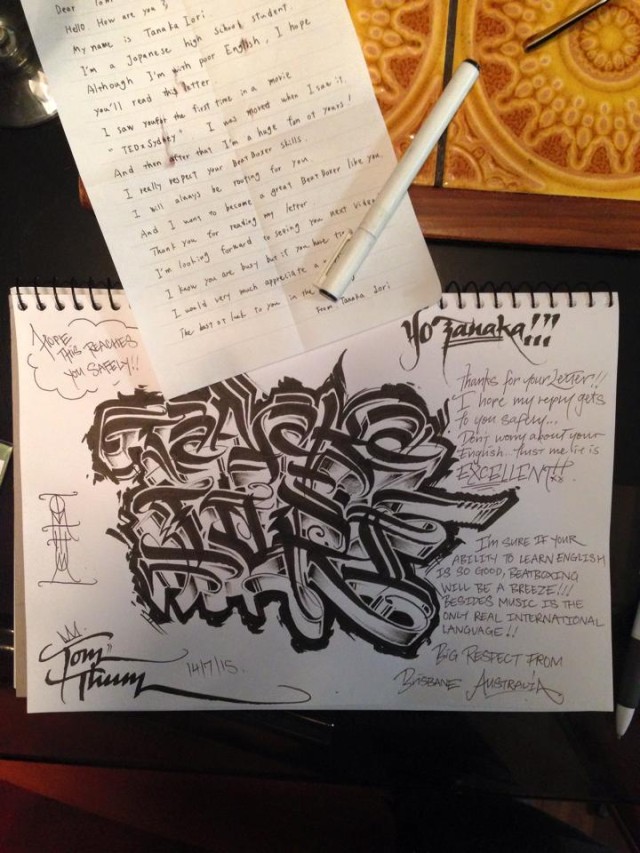 Dear Tom
Hello. How are you?
My name is Tanaka Iori.
I'm a Japanese high school student.
Although I'm with poor English, I hope
you'll read this letter
I saw you for the first time in a movie
"TEDxSydney". I was moved when I saw it.
And then after that I'm a huge fan of yours!
I really respect your BeatBoxer skills.
I will always be rooting for you
And I want to become a great BeatBoxer like you.
Thank you for reading my letter
I'm looking forward to seeing you next video
I know you are busy but if you have
I would very much appreciate a
The best of luck to you in the
From Tanaka Iori
HOPE
THIS REACHES
YOU SAFELY!!
Yo Tanaka!!!
Thanks for your Letter!!
I hope my reply gets
to you safely...
Don't worry about your
English.. trust me it is
EXCELLENT!!
TANAKA
IORI
I'M SURE IF YOUR
ABILITY TO LEARN ENGLISH
IS SO GOOD, BEATBOXING
WILL BE A BREEZE!!!
BESIDES MUSIC IS THE
ONLY REAL INTERNATIONAL
LANGUAGE!!
BIG RESPECT FROM
BRISBANE AUSTRALIA
Tom
Thum
14/7/15.